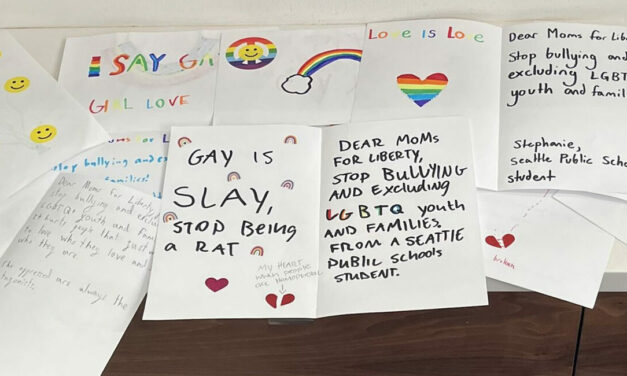 I SAY GA
GIRL LOVE
Love is Love
Dear Moms for Lib
Stop bullying and
excluding LGBT
youth and famil
Stephanie,
Seattle Public Scho
student
stop bullying and ex
families!
Dear Moms For Liberty
stop bullying and exclu
LGBTQ+ youth and Fam
it hurts guys that just w
to love who they love and
who they are.
the oppressed are always the
GAY IS
SLAY,
STOP Being
a RAT
MY HEART
when people
are homophobic
DEAR MOMS
FOR LIBERTY,
STOP BULLYING
AND EXCLUDING
LGBTQ youth
AND FAMILIES.
FROM A SEATTLE
PUBLIC SCHOOLS
STUDENT.
broken